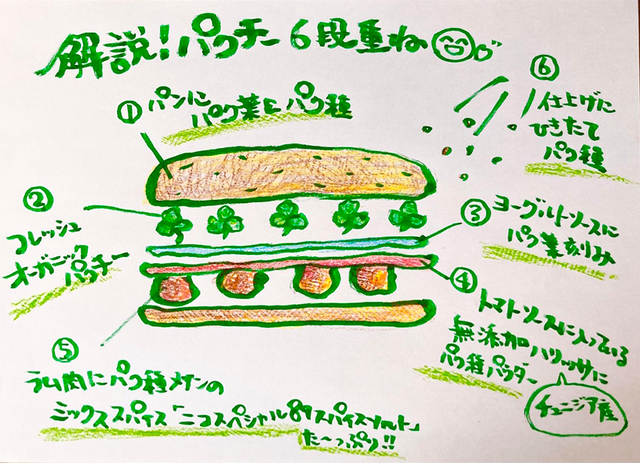 解説！パクチー6段重ね
①パンに
パク葉とパク種
⑥
仕上げに
ひきたて
パク種
②
フレッシュ
オーガニック
パクチー
③ヨーグルトソースに
パク葉刻み
④
トマトソースに入っている
無添加ハリッサに
パク種パウダー
チュニジア産
⑤
ラム肉にパク種メインの
ミックススパイス「ニコスペシャル89スパイスソルト」
た〜っぷり!!